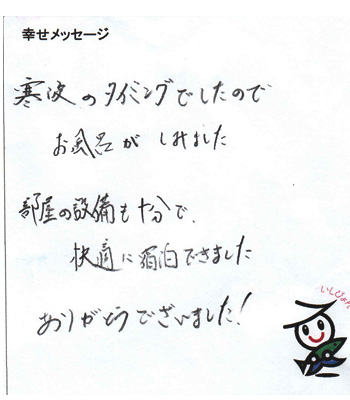 幸せメッセージ
寒波のタイミングでしたので
お風呂がしみました
部屋の設備も十分で、
快適に宿泊できました
ありがとうございました!
いしぴょん